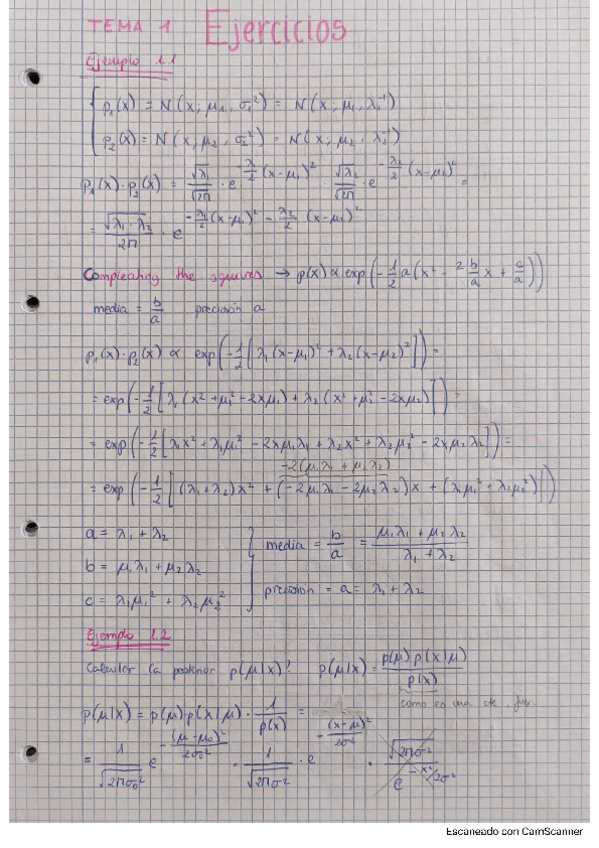 TEMA 1 Ejercicios
Ejemplo 1.1
p₁(x) = N(x; μ₁, σ₁²) = N(x; μ₁, λ₁⁻¹)
p₂(x) = N(x; μ₂, σ₂²) = N(x; μ₂, λ₂⁻¹)
p₁(x)·p₂(x) = √λ₁/√2π · e^(-λ₁/2 (x-μ₁)²) · √λ₂/√2π e^(-λ₂/2 (x-μ₂)²) =
= √(λ₁·λ₂)/2π · e^(-λ₁/2 (x-μ₁)² - λ₂/2 (x-μ₂)²)
Compleating the squares → p(x) ∝ exp(-1/2 a(x² - 2 b/a x + c/a))
media = b/a precisión a
p₁(x)·p₂(x) ∝ exp(-1/2 [λ₁(x-μ₁)² + λ₂(x-μ₂)²]) =
= exp(-1/2 [λ₁(x²+μ₁²-2xμ₁) + λ₂(x²+μ₂²-2xμ₂)]) =
= exp(-1/2 [λ₁x² + λ₁μ₁² - 2xμ₁λ₁ + λ₂x² + λ₂μ₂² - 2xμ₂λ₂]) =
-2(μ₁λ₁ + μ₂λ₂)
= exp(-1/2 [(λ₁+λ₂)x² + (-2μ₁λ₁ - 2μ₂λ₂)x + (λ₁μ₁² + λ₂μ₂²)])
a = λ₁ + λ₂
b = μ₁λ₁ + μ₂λ₂
c = λ₁μ₁² + λ₂μ₂²
media = b/a = (μ₁λ₁ + μ₂λ₂)/(λ₁ + λ₂)
precision = a = λ₁ + λ₂
Ejemplo 1.2
Calcular la posterior p(μ|x)? p(μ|x) = p(μ) p(x|μ)/p(x)
como es una cte,
p(μ|x) = p(μ)·p(x|μ)· 1/p(x) =
= 1/√(2πσ₀²) e^(-(μ-μ₀)²/2σ₀²) · 1/√(2πσ²) · e^(-(x-μ)²/2σ²) · √(2πσ²)/e^(-x²/2σ²)
Escaneado con CamScanner